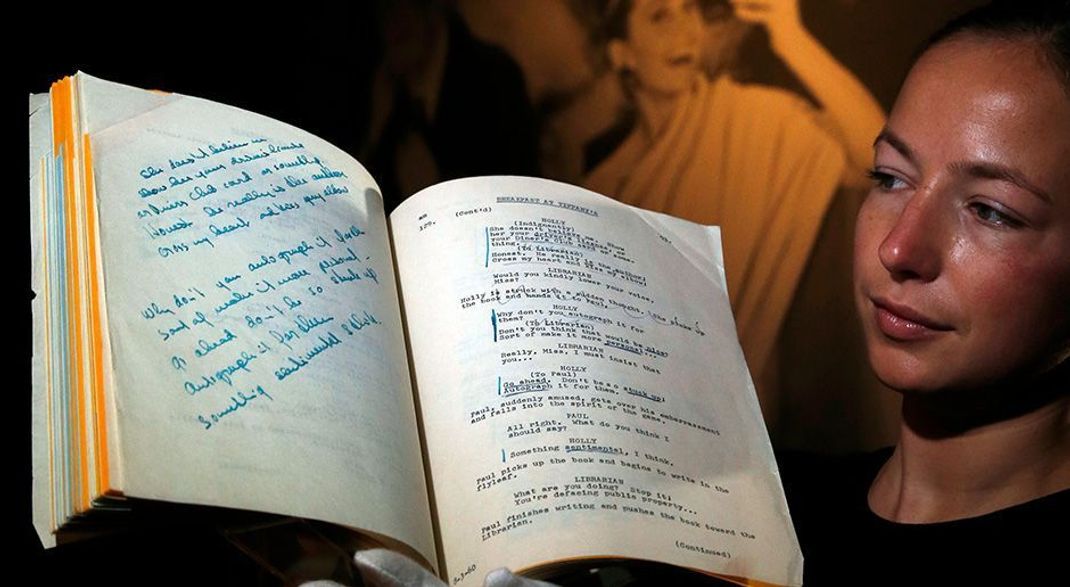 She doesn't believe me
show her your drivers license
or Diners Club card or something
Honest. He really is the author
Cross my heart and kiss my elbow
Why don't you autograph it for them
Sort of make it more personal -
Go ahead don't be so stuck up
autograph it for them
Something sentimental I think.
BREAKFAST AT TIFFANY'S
(Cont'd)
HOLLY
(Indignantly)
She doesn't believe me. Show
her your driver's license or
your Diner's Club card or some-
thing.
(To Librarian)
Honest. He really is the author!
Cross my heart and kiss my elbow!
LIBRARIAN
Would you kindly lower your voice,
Miss!
Holly is struck with a sudden thought. She picks up
the book and hands it to Paul.
HOLLY
Why don't you autograph it for
them?
(To Librarian)
Don't you think that would be nice?
Sort of make it more personal...
LIBRARIAN
Really, Miss, I must insist that
you...
HOLLY
(To Paul)
Go ahead. Don't be so stuck up!
Autograph it for them.
Paul, suddenly amused, gets over his embarrassment
and falls into the spirit of the game.
PAUL
All right. What do you think I
should say?
HOLLY
Something sentimental, I think.
Paul picks up the book and begins to write in the
flyleaf.
LIBRARIAN
What are you doing? Stop it!
You're defacing public property...
Paul finishes writing and pushes the book toward the
Librarian.
(Continued)
8-3-60